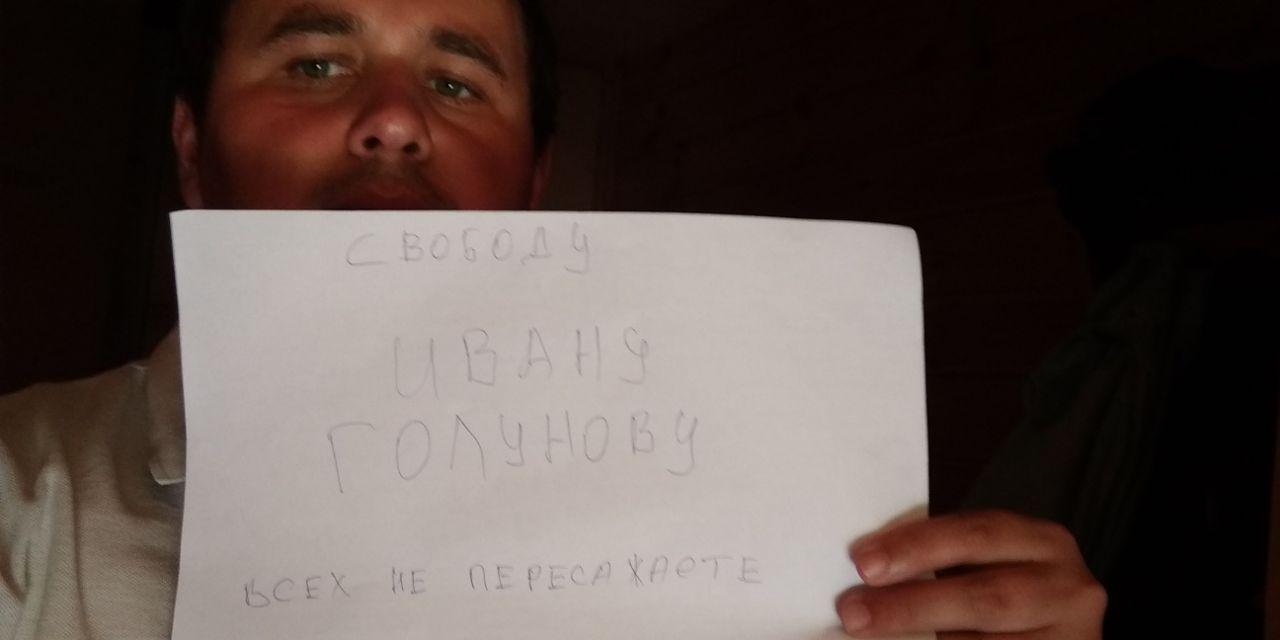 СВОБОДУ
ИВАНУ
ГОЛУНОВУ
ВСЕХ НЕ ПЕРЕСАЖАЕТЕ